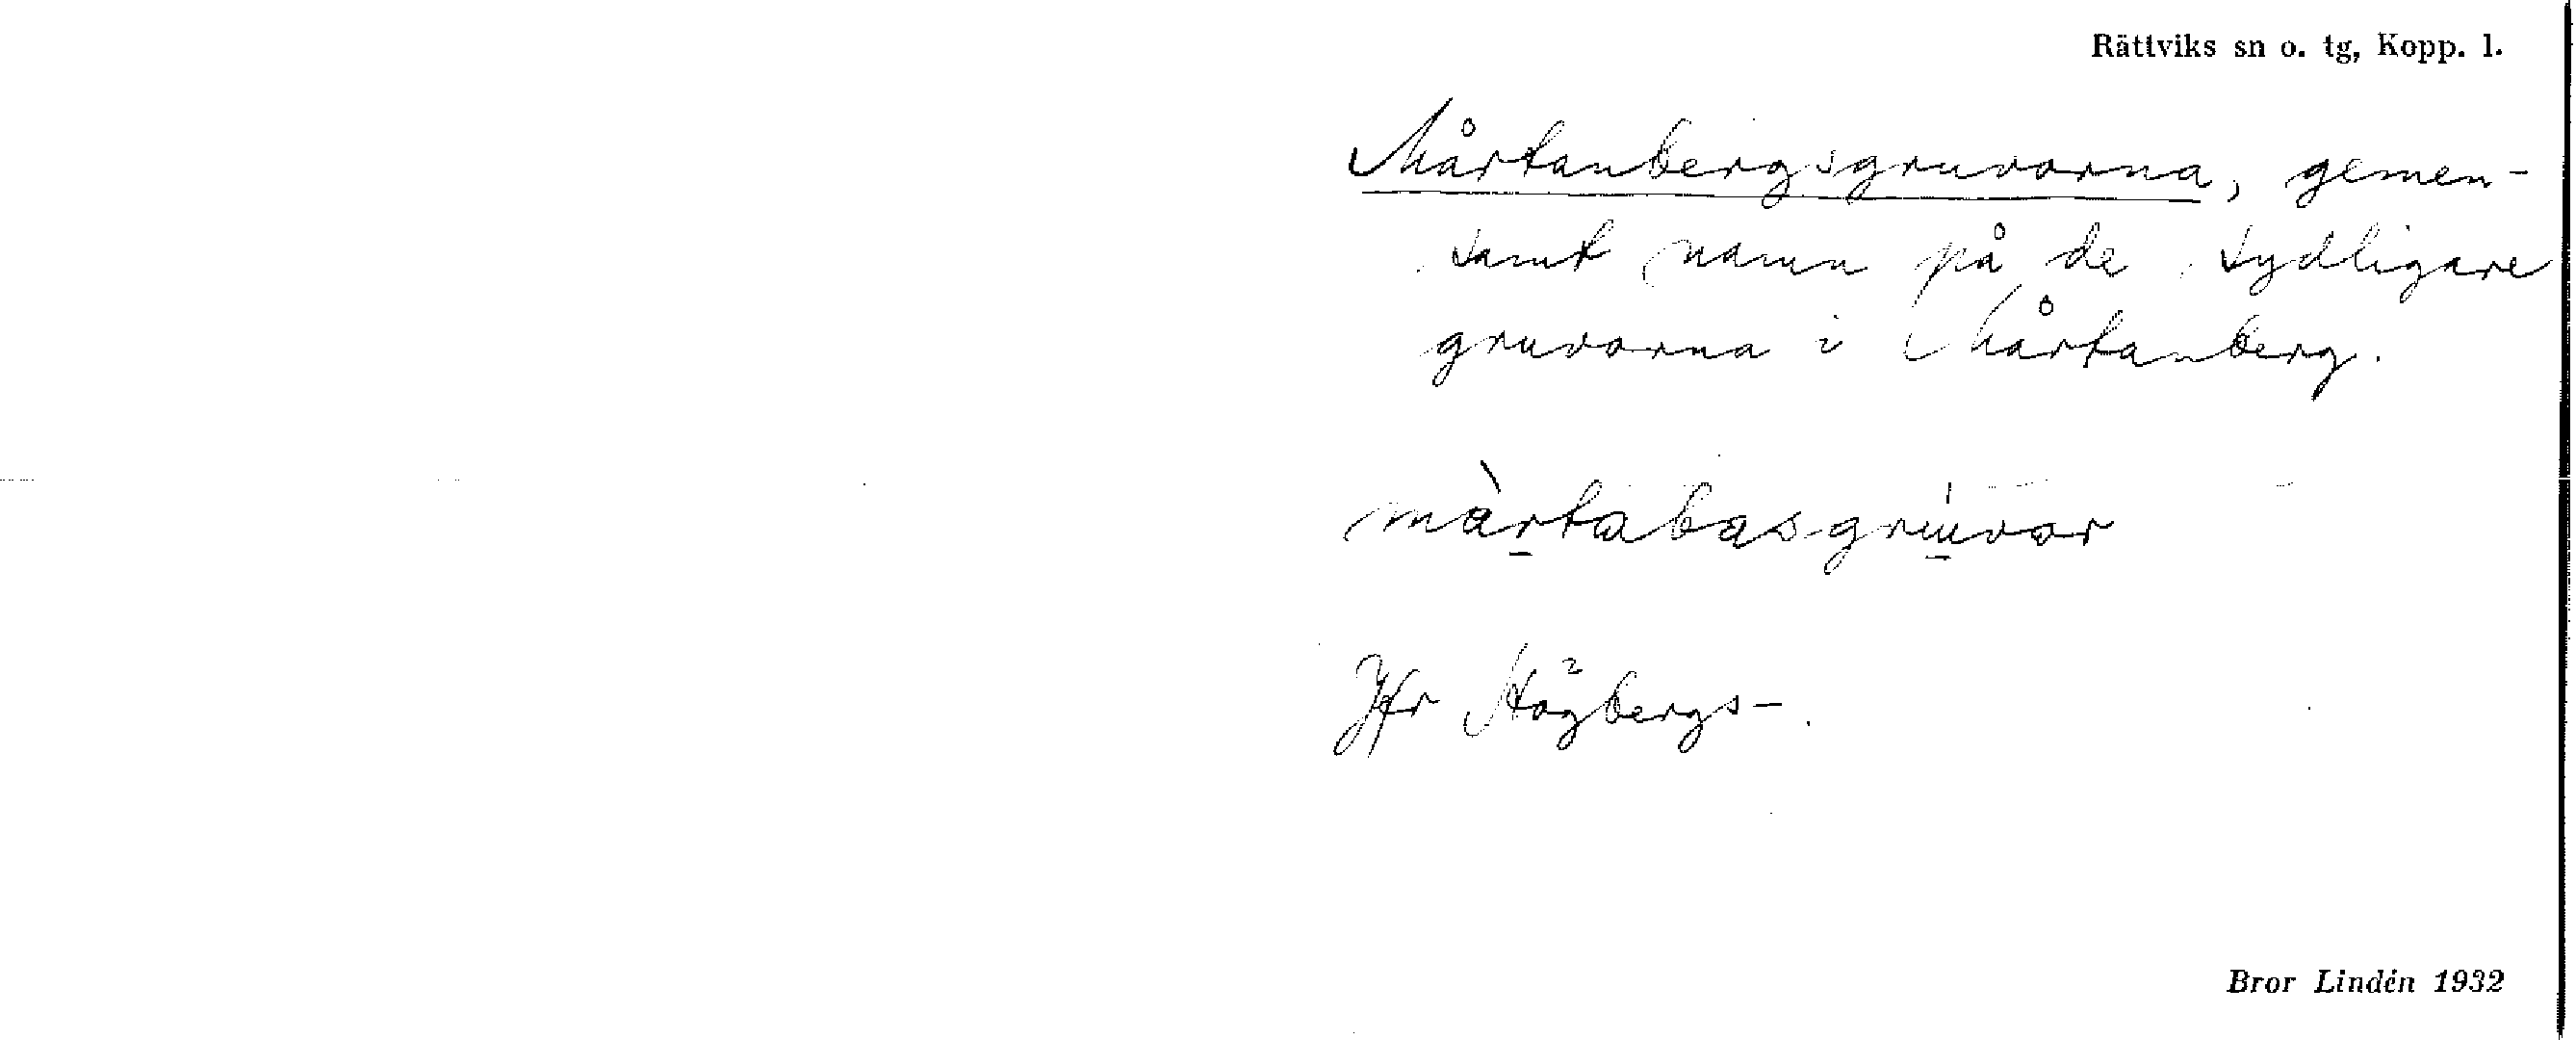 Rättviks sn o. tg, Kopp. l.
Mårtanbergsgruvorna, gemen-
samt namn på de sydligare
gruvorna i Mårtanberg.
màrtabasgrúvor
Jfr Högbergs-.
Bror Lindén 1932